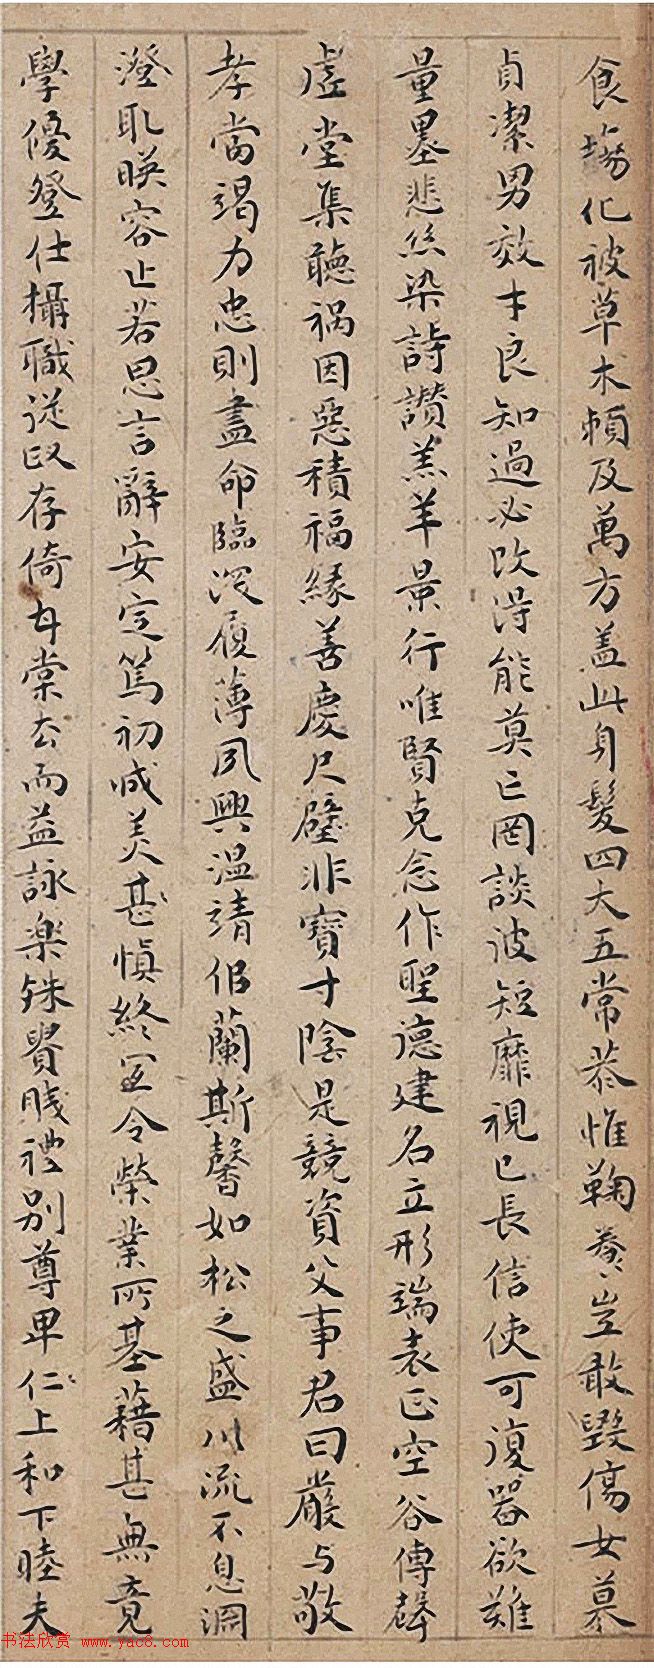 食場化被草木賴及萬方盖此身髮四大五常恭惟鞠養豈敢毀傷女慕
貞潔男效才良知過必改得能莫忘罔談彼短靡視已長信使可復器欲難
量墨悲丝染詩讚羔羊景行唯賢克念作聖德建名立形端表正空谷傳聲
虛堂集聽禍因惡積福緣善慶尺璧非寶寸陰是競資父事君曰嚴与敬
孝當竭力忠則盡命臨深履薄夙興温凊似蘭斯馨如松之盛川流不息淵
澄取暎容止若思言辭安定篤初诚美甚慎終宜令榮業所基藉甚無竟
學優登仕攝職從政存倚甘棠去而益詠樂殊貴賤禮別尊卑仁上和下睦夫
书法欣赏 www.yac8.com